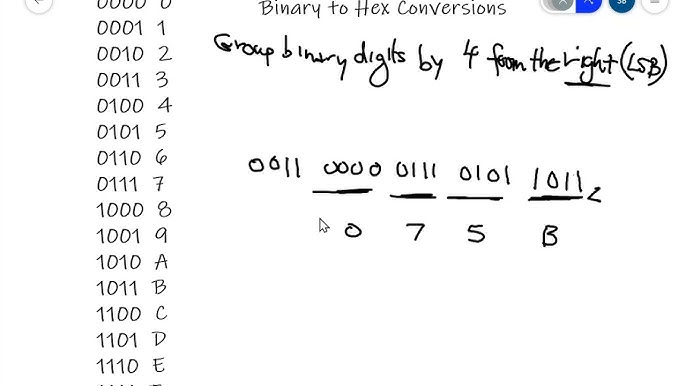 0000 0
Binary to Hex Conversions
SB
0001 1
Group binary digits by 4 from the right (LSB)
0010 2
0011 3
0100 4
0101 5
0110 6
0011 0000 0111 0101 1011₂
0111 7
1000 8
0 7 5 B
1001 9
1010 A
1011 B
1100 C
1101 D
1110 E